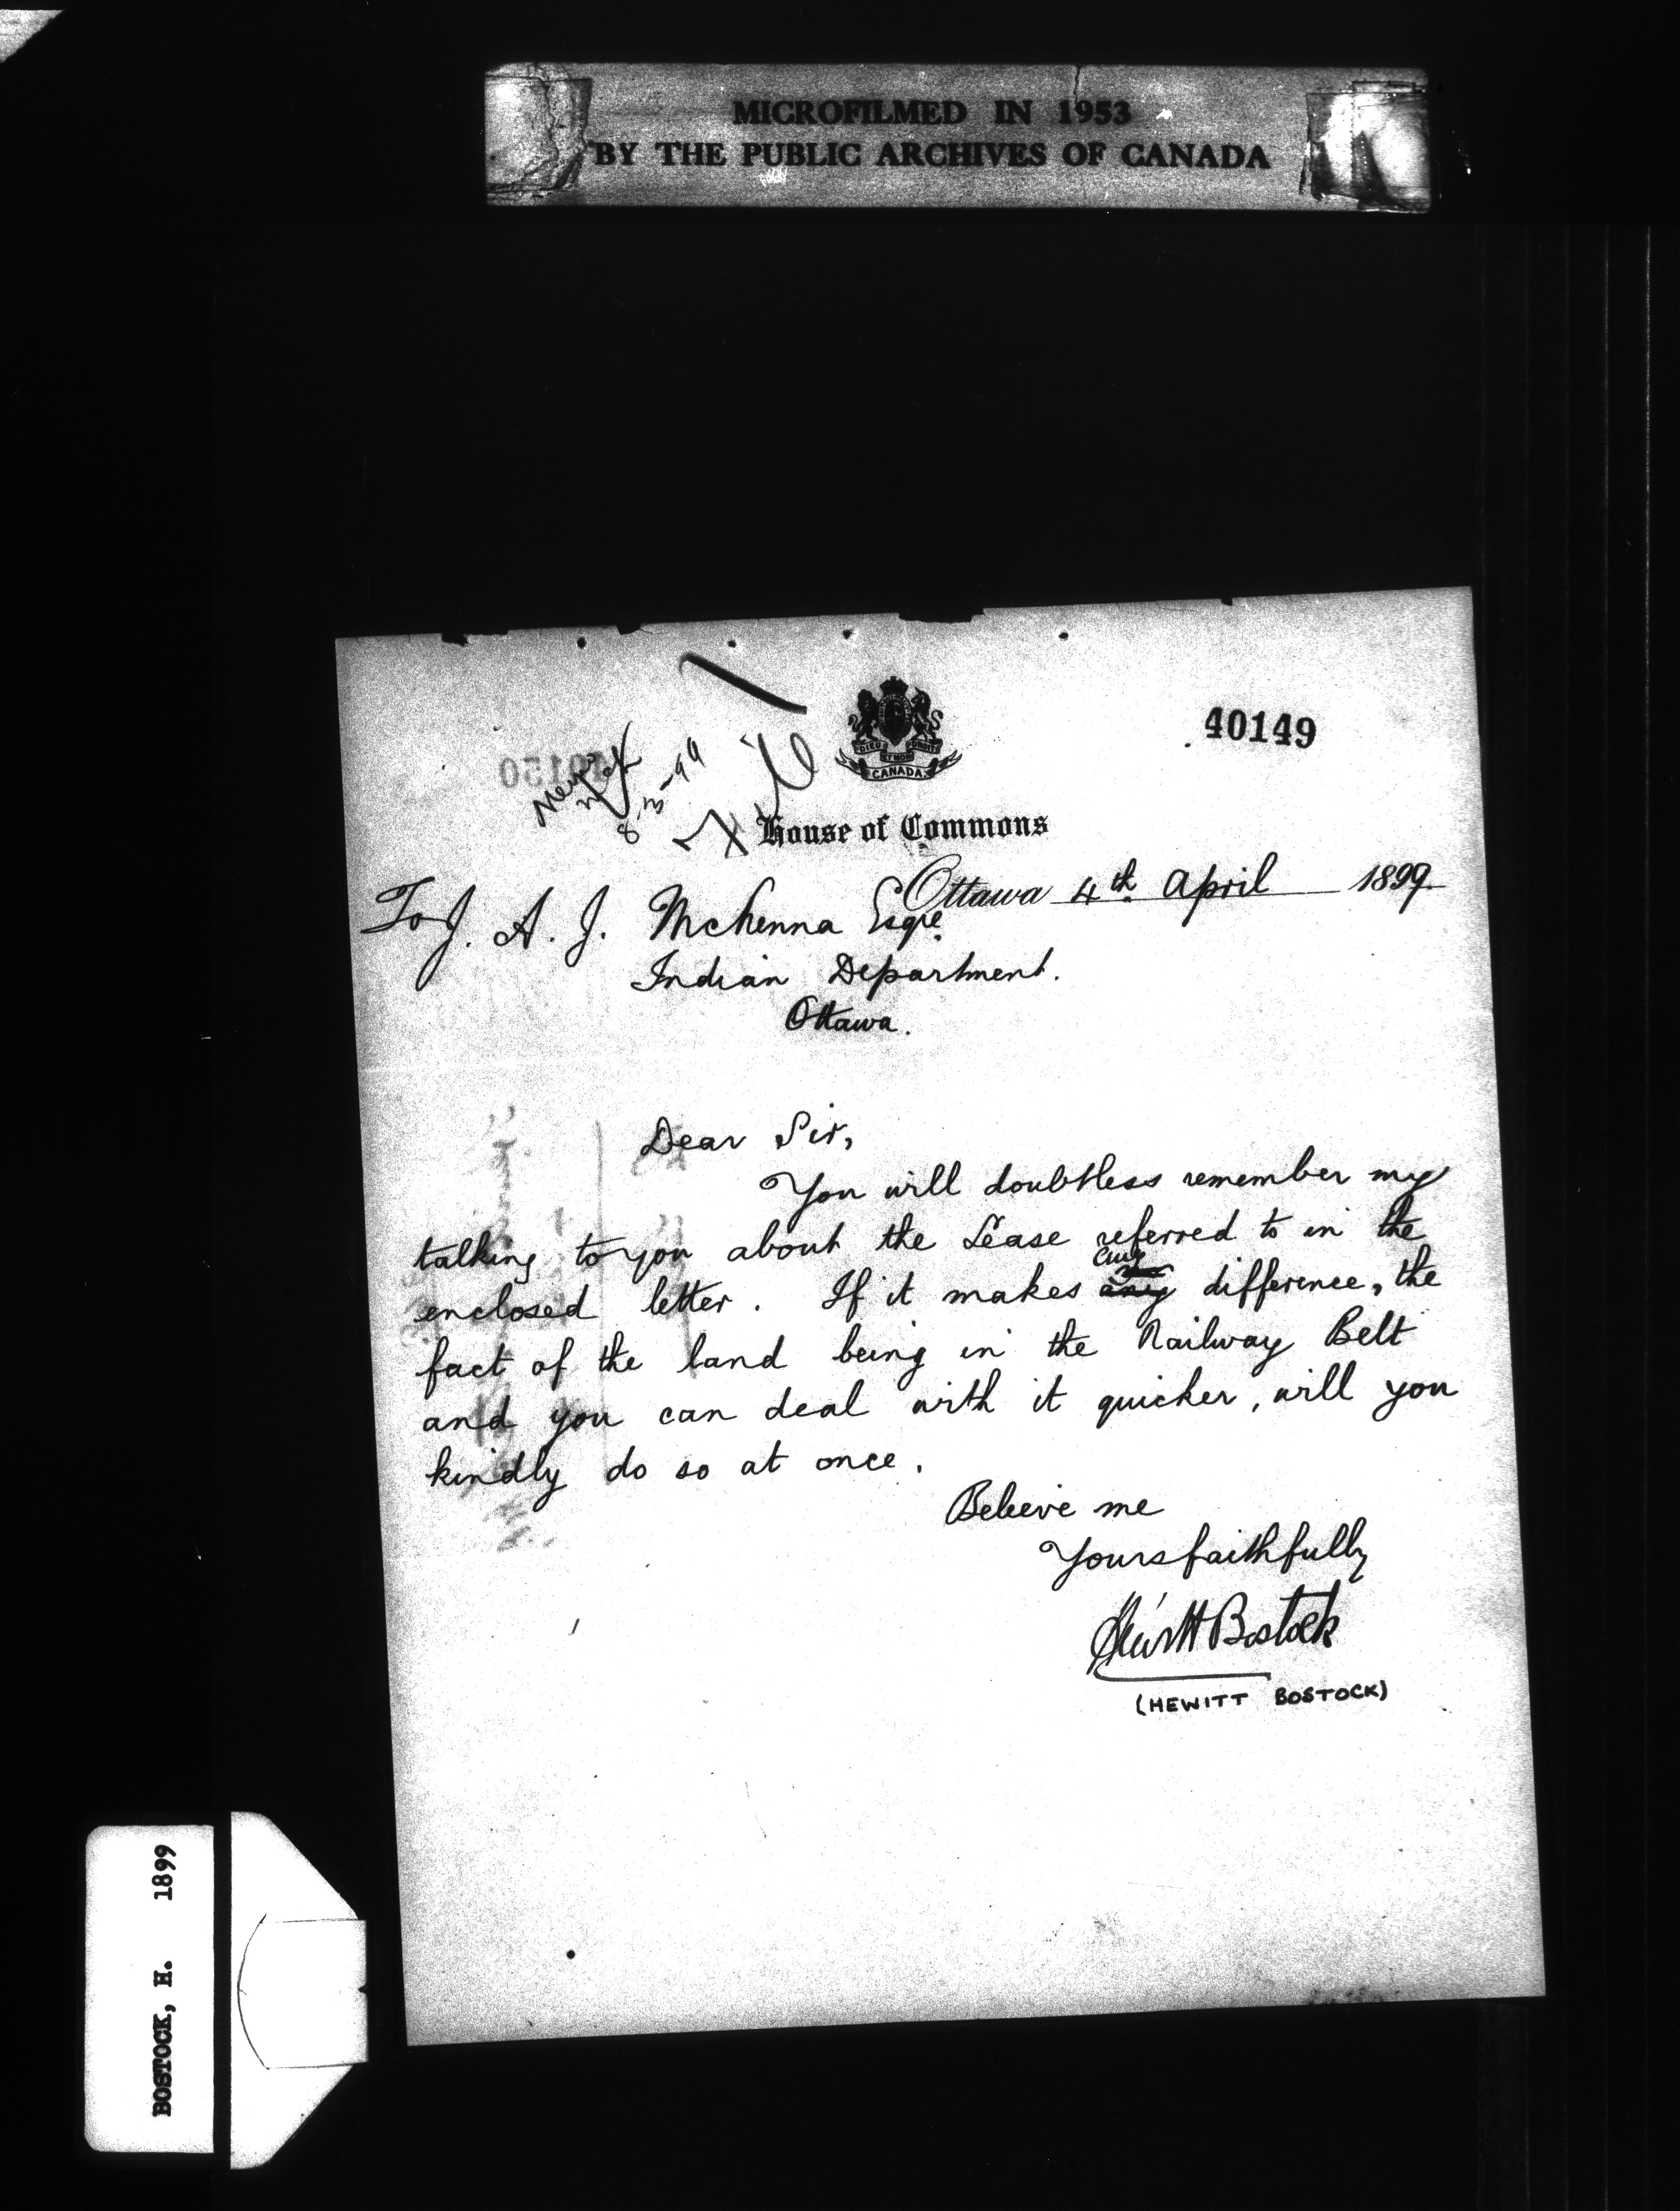 MICROFILMED IN 1953
BY THE PUBLIC ARCHIVES OF CANADA
40149
40150
DIEU ET MON DROIT
CANADA
File
House of Commons
Ottawa 4th. April 1899
To J. A. J. McKenna Esqre.
Indian Department.
Ottawa.
Dear Sir,
You will doubtless remember my
talking to you about the Lease referred to in the
enclosed letter. If it makes any difference, the
fact of the land being in the Railway Belt
and you can deal with it quicker, will you
kindly do so at once.
Believe me
Yours faithfully
Hewitt Bostock
(HEWITT BOSTOCK)
BOSTOCK, H. 1899